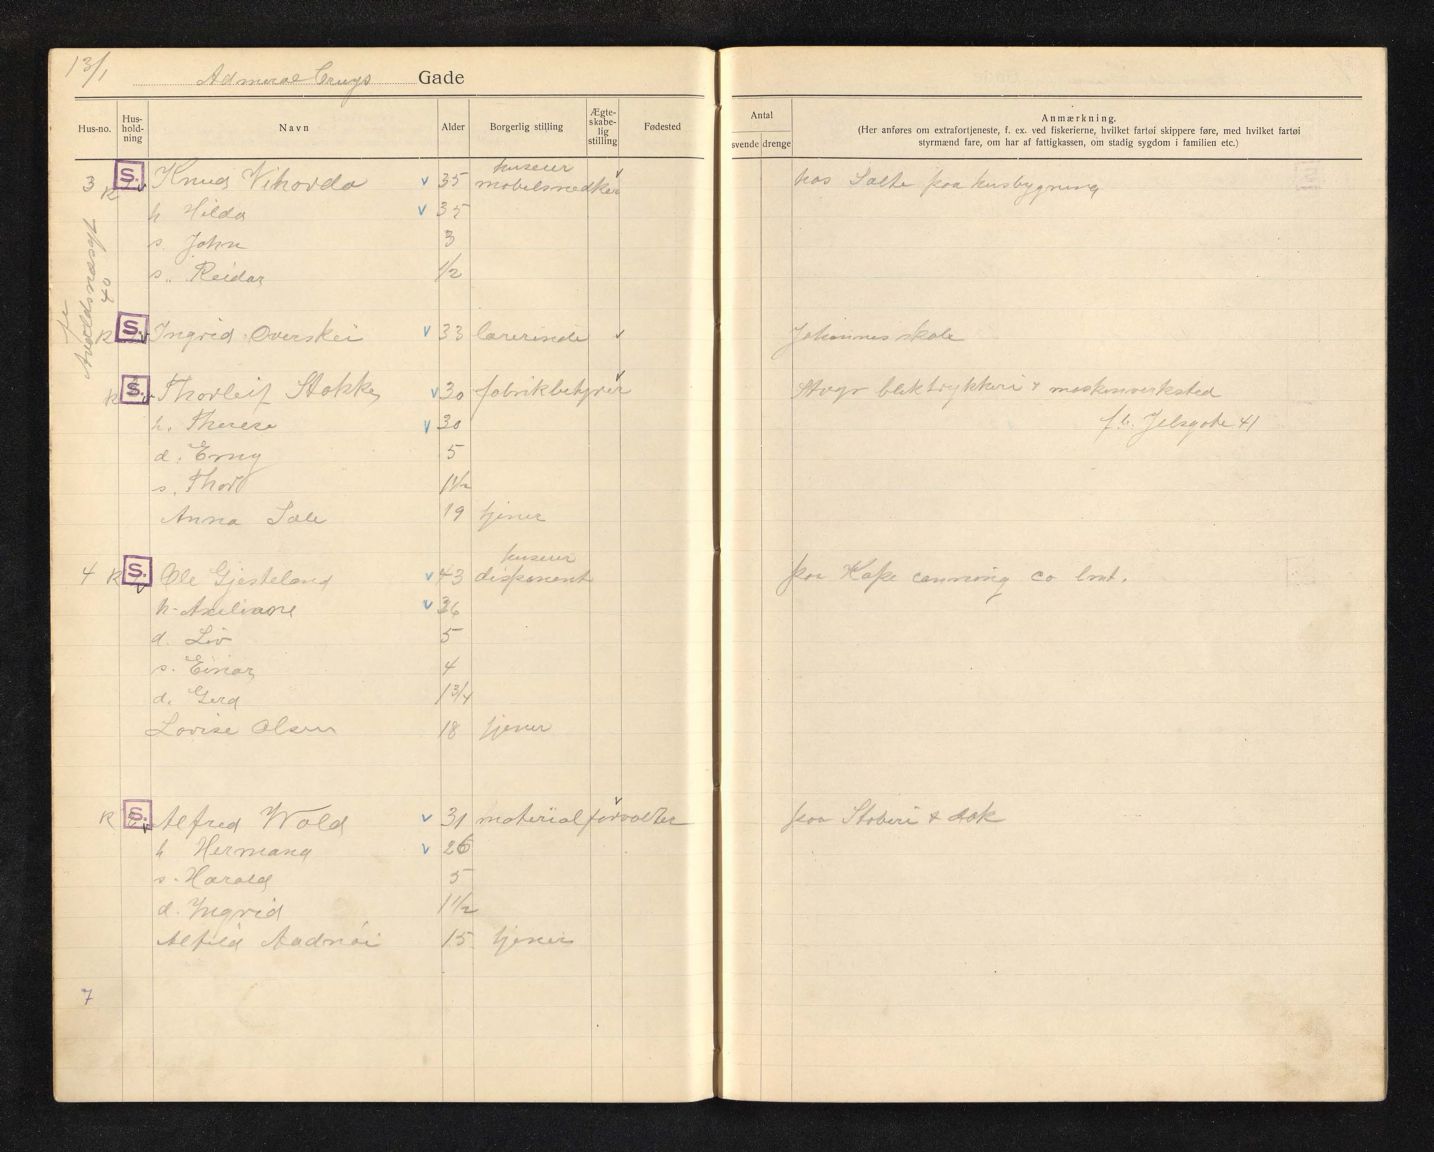 13/1
Admiral Cruys Gade
Hus-no. Hus-hold-ning Navn Alder Borgerlig stilling Ægte-skabe-lig stilling Fødested
Antal
svende drenge
Anmærkning.
(Her anføres om extrafortjeneste, f. ex. ved fiskerierne, hvilket fartøi skippere føre, med hvilket fartøi
styrmænd fare, om har af fattigkassen, om stadig sygdom i familien etc.)
huseier
3 K S. v Knud Vihovda v 35 møbelsnedker v hos Salte paa husbygning
h Hilda v 35
s. John 3
s. Reidar 1/2
40
K S. v Ingrid Overskei v 33 lærerinde v Johannes skole
K S. v Thorleif Stokke v 30 fabrikbetyrer v Stvgr bliktrykkeri & maskinverksted
h. Therese v 30 f. b. Jelsgate 41
d. Erny 5
s. Thor 1 1/2
Anna Sele 19 tjener
huseier
4 K S. v Ole Gjesteland v 43 disponent paa Kape canning co lmt.
h. v 36
d. Liv 5
s. Einar 4
d. Gerd 1 3/4
Lovise Olsen 18 tjener
K S. v Alfred Wold v 31 materialforvalter v paa Støberi & dok
h Hermana v 26
s. Harald 5
d. Ingrid 1 1/2
Alfild Aadnøi 15 tjener
7